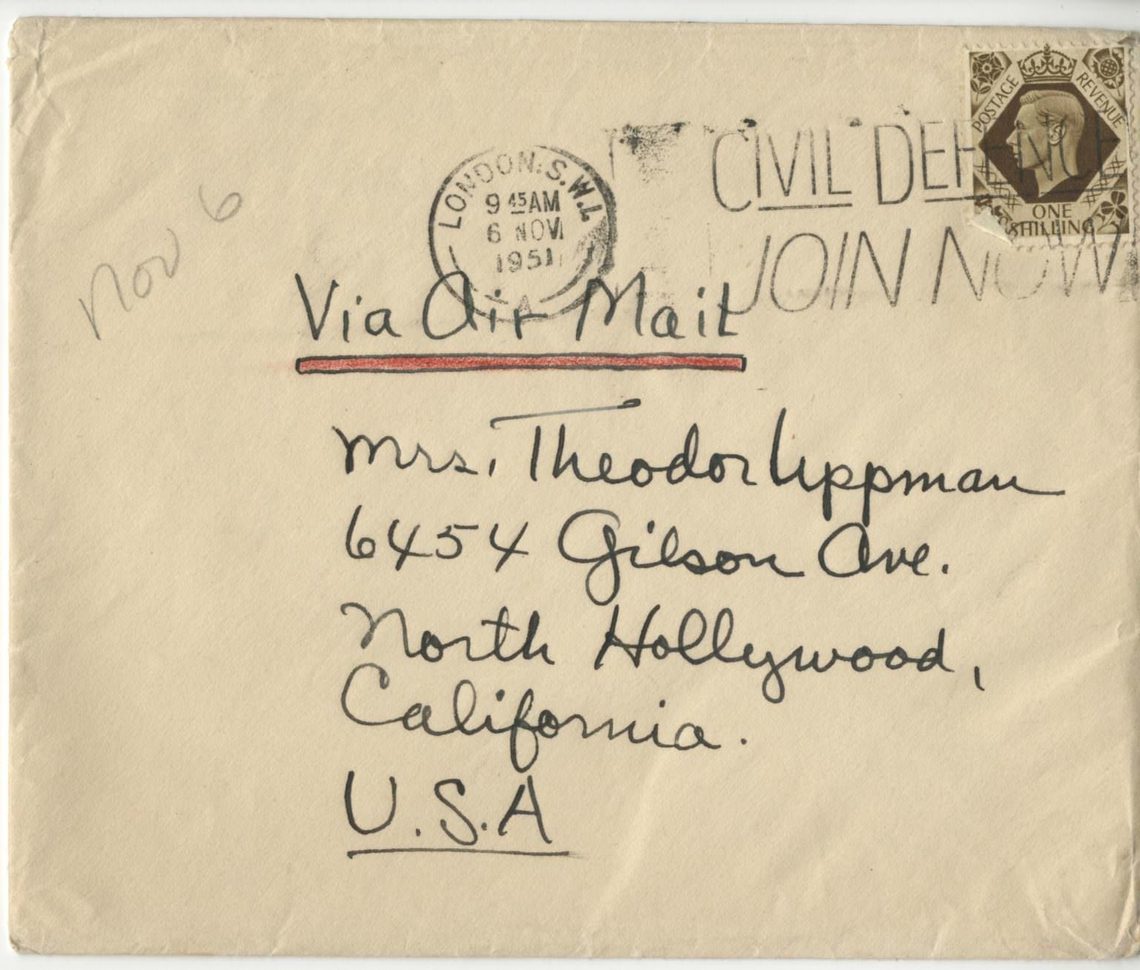 POSTAGE REVENUE
ONE
SHILLING
CIVIL DEFENCE
JOIN NOW
LONDON. S.W.1.
9 45 AM
6 NOV
1951
A
Nov 6
Via Air Mail
Mrs. Theodor Lippman
6454 Gilson Ave.
North Hollywood,
California.
U.S.A